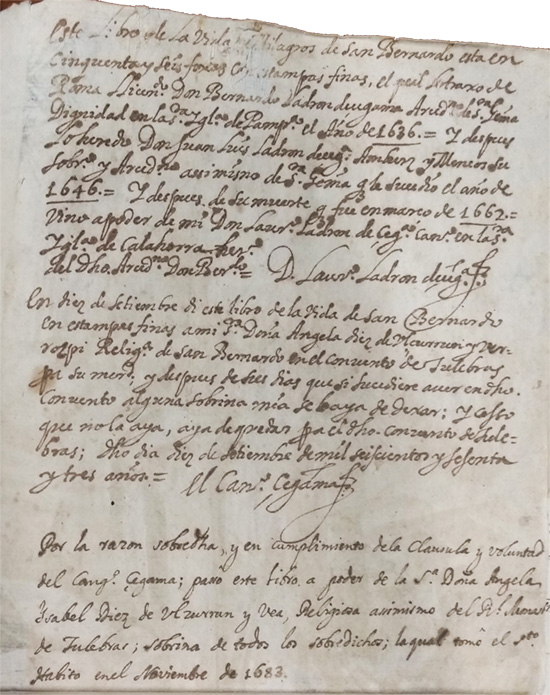 Este Libro de La Vida y Milagros de San Bernardo esta en
Cinquenta y seis foxas Con estampas finas, el qual Lo traxo de
Roma El licen.do Don Bernardo Ladron de cegama Arced.no de S.ta Gema
Dignidad en La S.ta Ygl.a de Pamp.a el Año de 1636.= Y despues
Lo heredo Don Juan Luis Ladron de ceg.a y Meneos su
Sobr.o y Arced.no assimismo de S.ta Gema q le sucedio el año de
1646.= Y despues de su muerte q fue en marco de 1662.=
Vino a poder de mi Don Laur.o Ladron de Ceg.a Can.o en La S.ta
Ygl.a de Calahorra her.o
del Dho. Arced.no Don Ber.do = D. Laur.o Ladron de ceg.a
En diez de setiembre di este libro de la Vida de san Bernardo
en estampas finas a mi Doña Angela diez de Vlcurrun y ver-
rozpi Relig.a de san Bernardo en el convento de Tulebras
pa su mer.d y despues de sus dias que si sucediere aver en dho.
Convento alguna sobrina mia se le aya de dexar; Y casso
que no la aya, aya de quedar pa el dho. Convento de Tule-
bras; Dho dia diez de setiembre de mil seiscientos y sesenta
y tres años.= El Can.o Cegama
Por la razon sobredha, y en cumplimiento de la Clausula y voluntad
del Cang.o Cegama; passo este libro a poder de la S.a Doña Angela
Ysabel Diez de Vlzurrun y Vea, Religiosa asimismo del R.l Monast.o
de Tulebras; sobrina de todos los sobredichos; la qual tomo el S.to
Habito en el Noviembre de 1683.